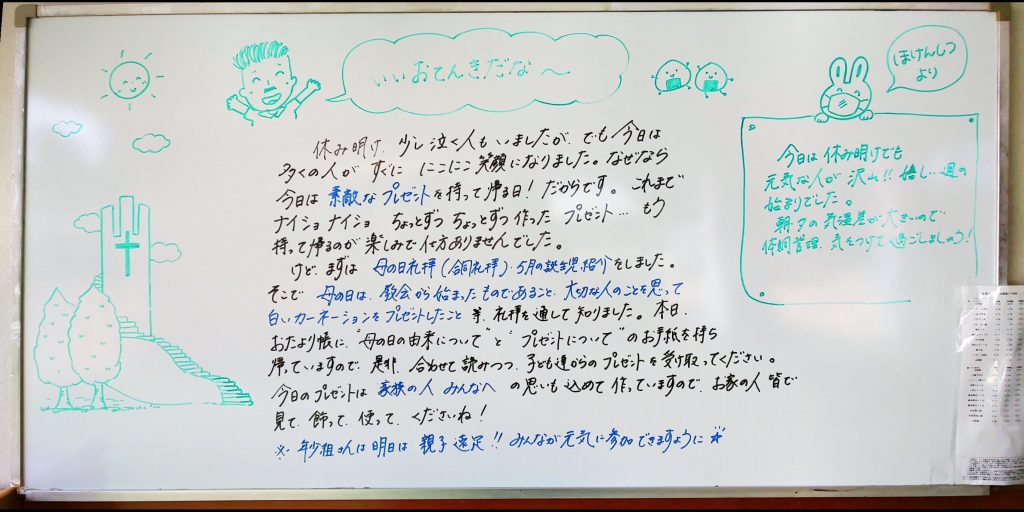 いいおてんきだな〜
ほけんしつ
より
休み明け、少し泣く人もいましたが、でも今日は
多くの人が すぐに にこにこ笑顔になりました。なぜなら
今日は 素敵なプレゼントを持って帰る日！だからです。これまで
ナイショナイショ ちょっとずつ ちょっとずつ作った プレゼント… もう
持って帰るのが楽しみで仕方ありませんでした。
けど、まずは 母の日礼拝(合同礼拝)・5月の誕生児紹介をしました。
そこで 母の日は、教会から始まったものであること、大切な人のことを思って
白いカーネーションをプレゼントしたこと 等、礼拝を通して知りました。本日、
おたより帳に、"母の日の由来について"と"プレゼントについて"のお手紙を持ち
帰っていますので、是非、合わせて読みつつ、子ども達からのプレゼントを受け取ってください。
今日のプレゼントは 家族の人 みんなへ の思いも込めて作っていますので、お家の人皆で
見て、飾って、使って、くださいね！
※年少組さんは明日は 親子遠足!! みんなが元気に参加できますように☆
今日は休み明けでも
元気な人が沢山!! 嬉しい週の
始まりでした。
朝・夕の気温差が大きいので
体調管理、気をつけて過ごしましょう！